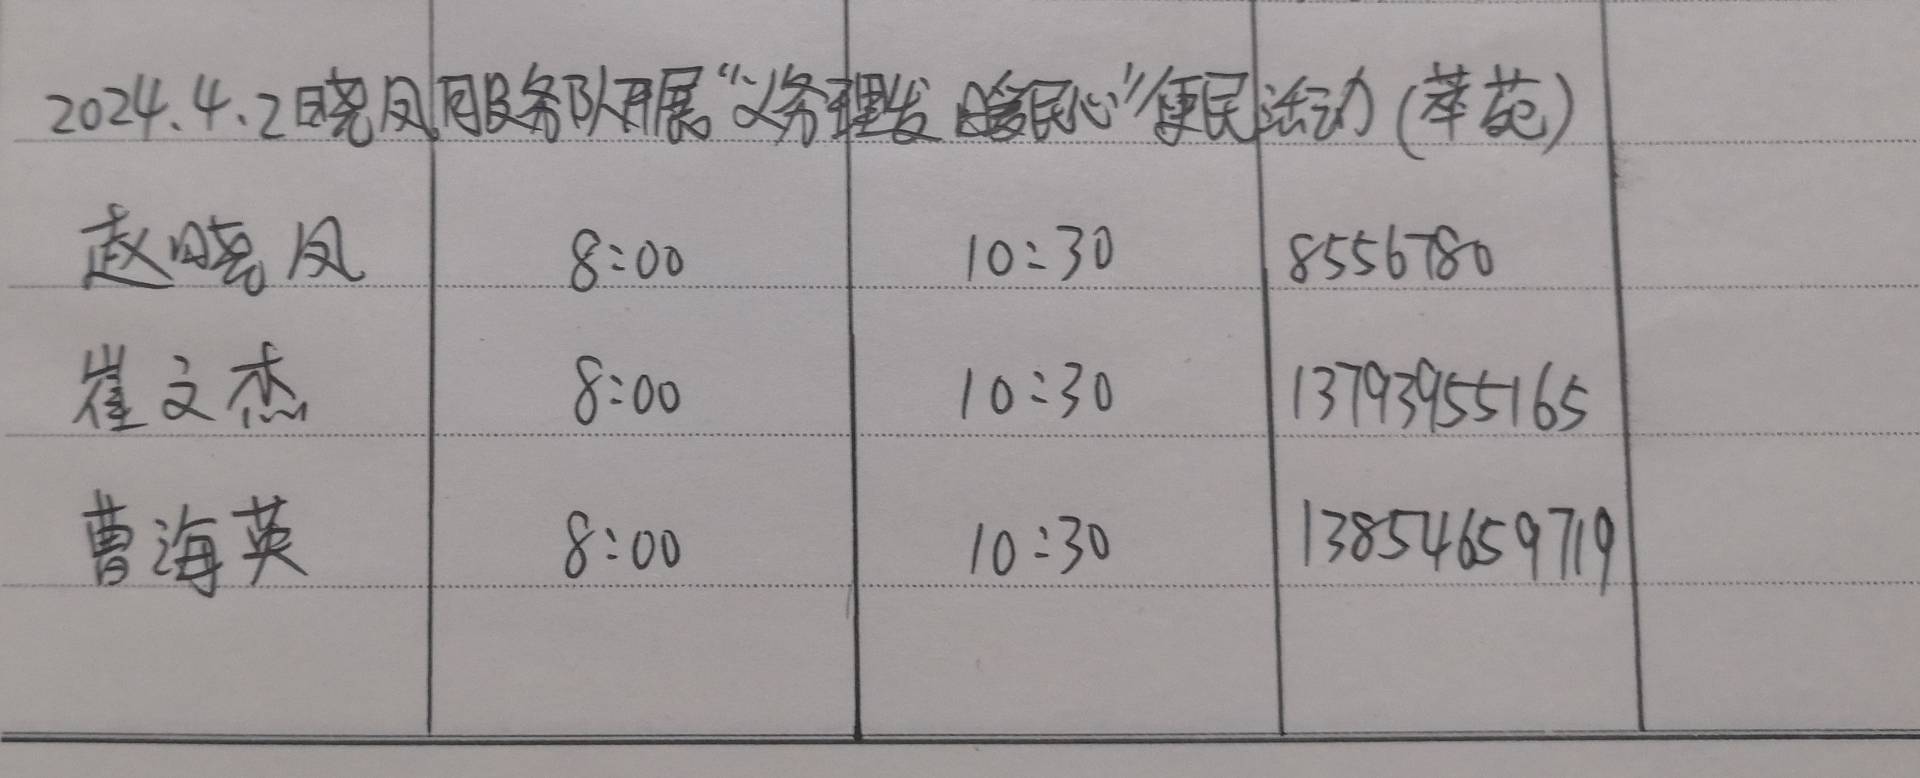 2024.4.2晓凤服务队开展“义务理发 暖民心”便民活动(萃苑)
赵晓凤 8:00 10:30 8556780
崔文杰 8:00 10:30 13793955165
曹海英 8:00 10:30 13854659719